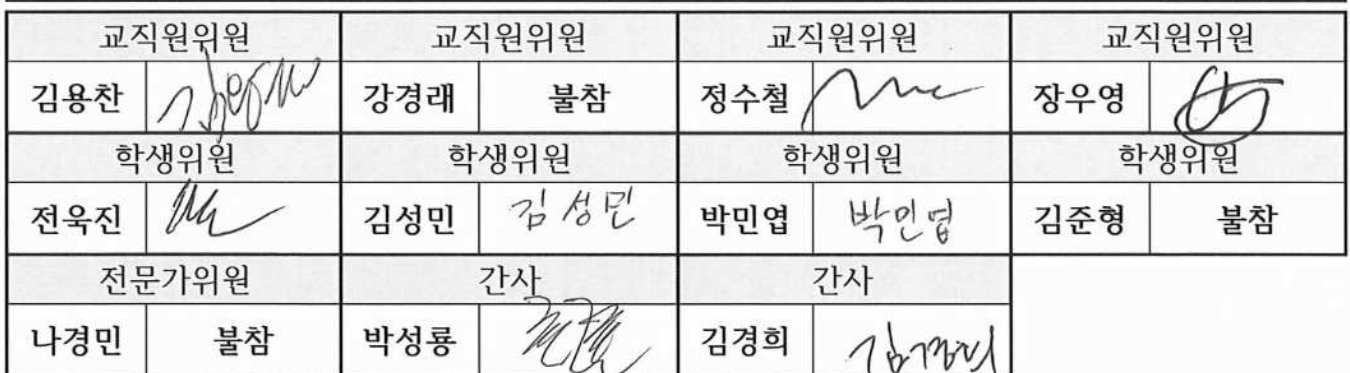 교직원위원 교직원위원 교직원위원 교직원위원
김용찬 강경래 불참 정수철 장우영
학생위원 학생위원 학생위원 학생위원
전욱진 김성민 김성민 박민엽 박민엽 김준형 불참
전문가위원 간사 간사
나경민 불참 박성룡 김경희 김경희